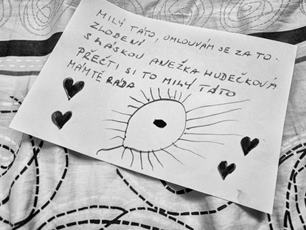 MILÝ TÁTO, OMLOUVÁM SE ZA TO
ZLOBENÍ
S LÁSKOU ANEŽKA HUDEČKOVÁ
PŘEČTI SI TO MILÝ TÁTO
MÁMTĚ RÁDA